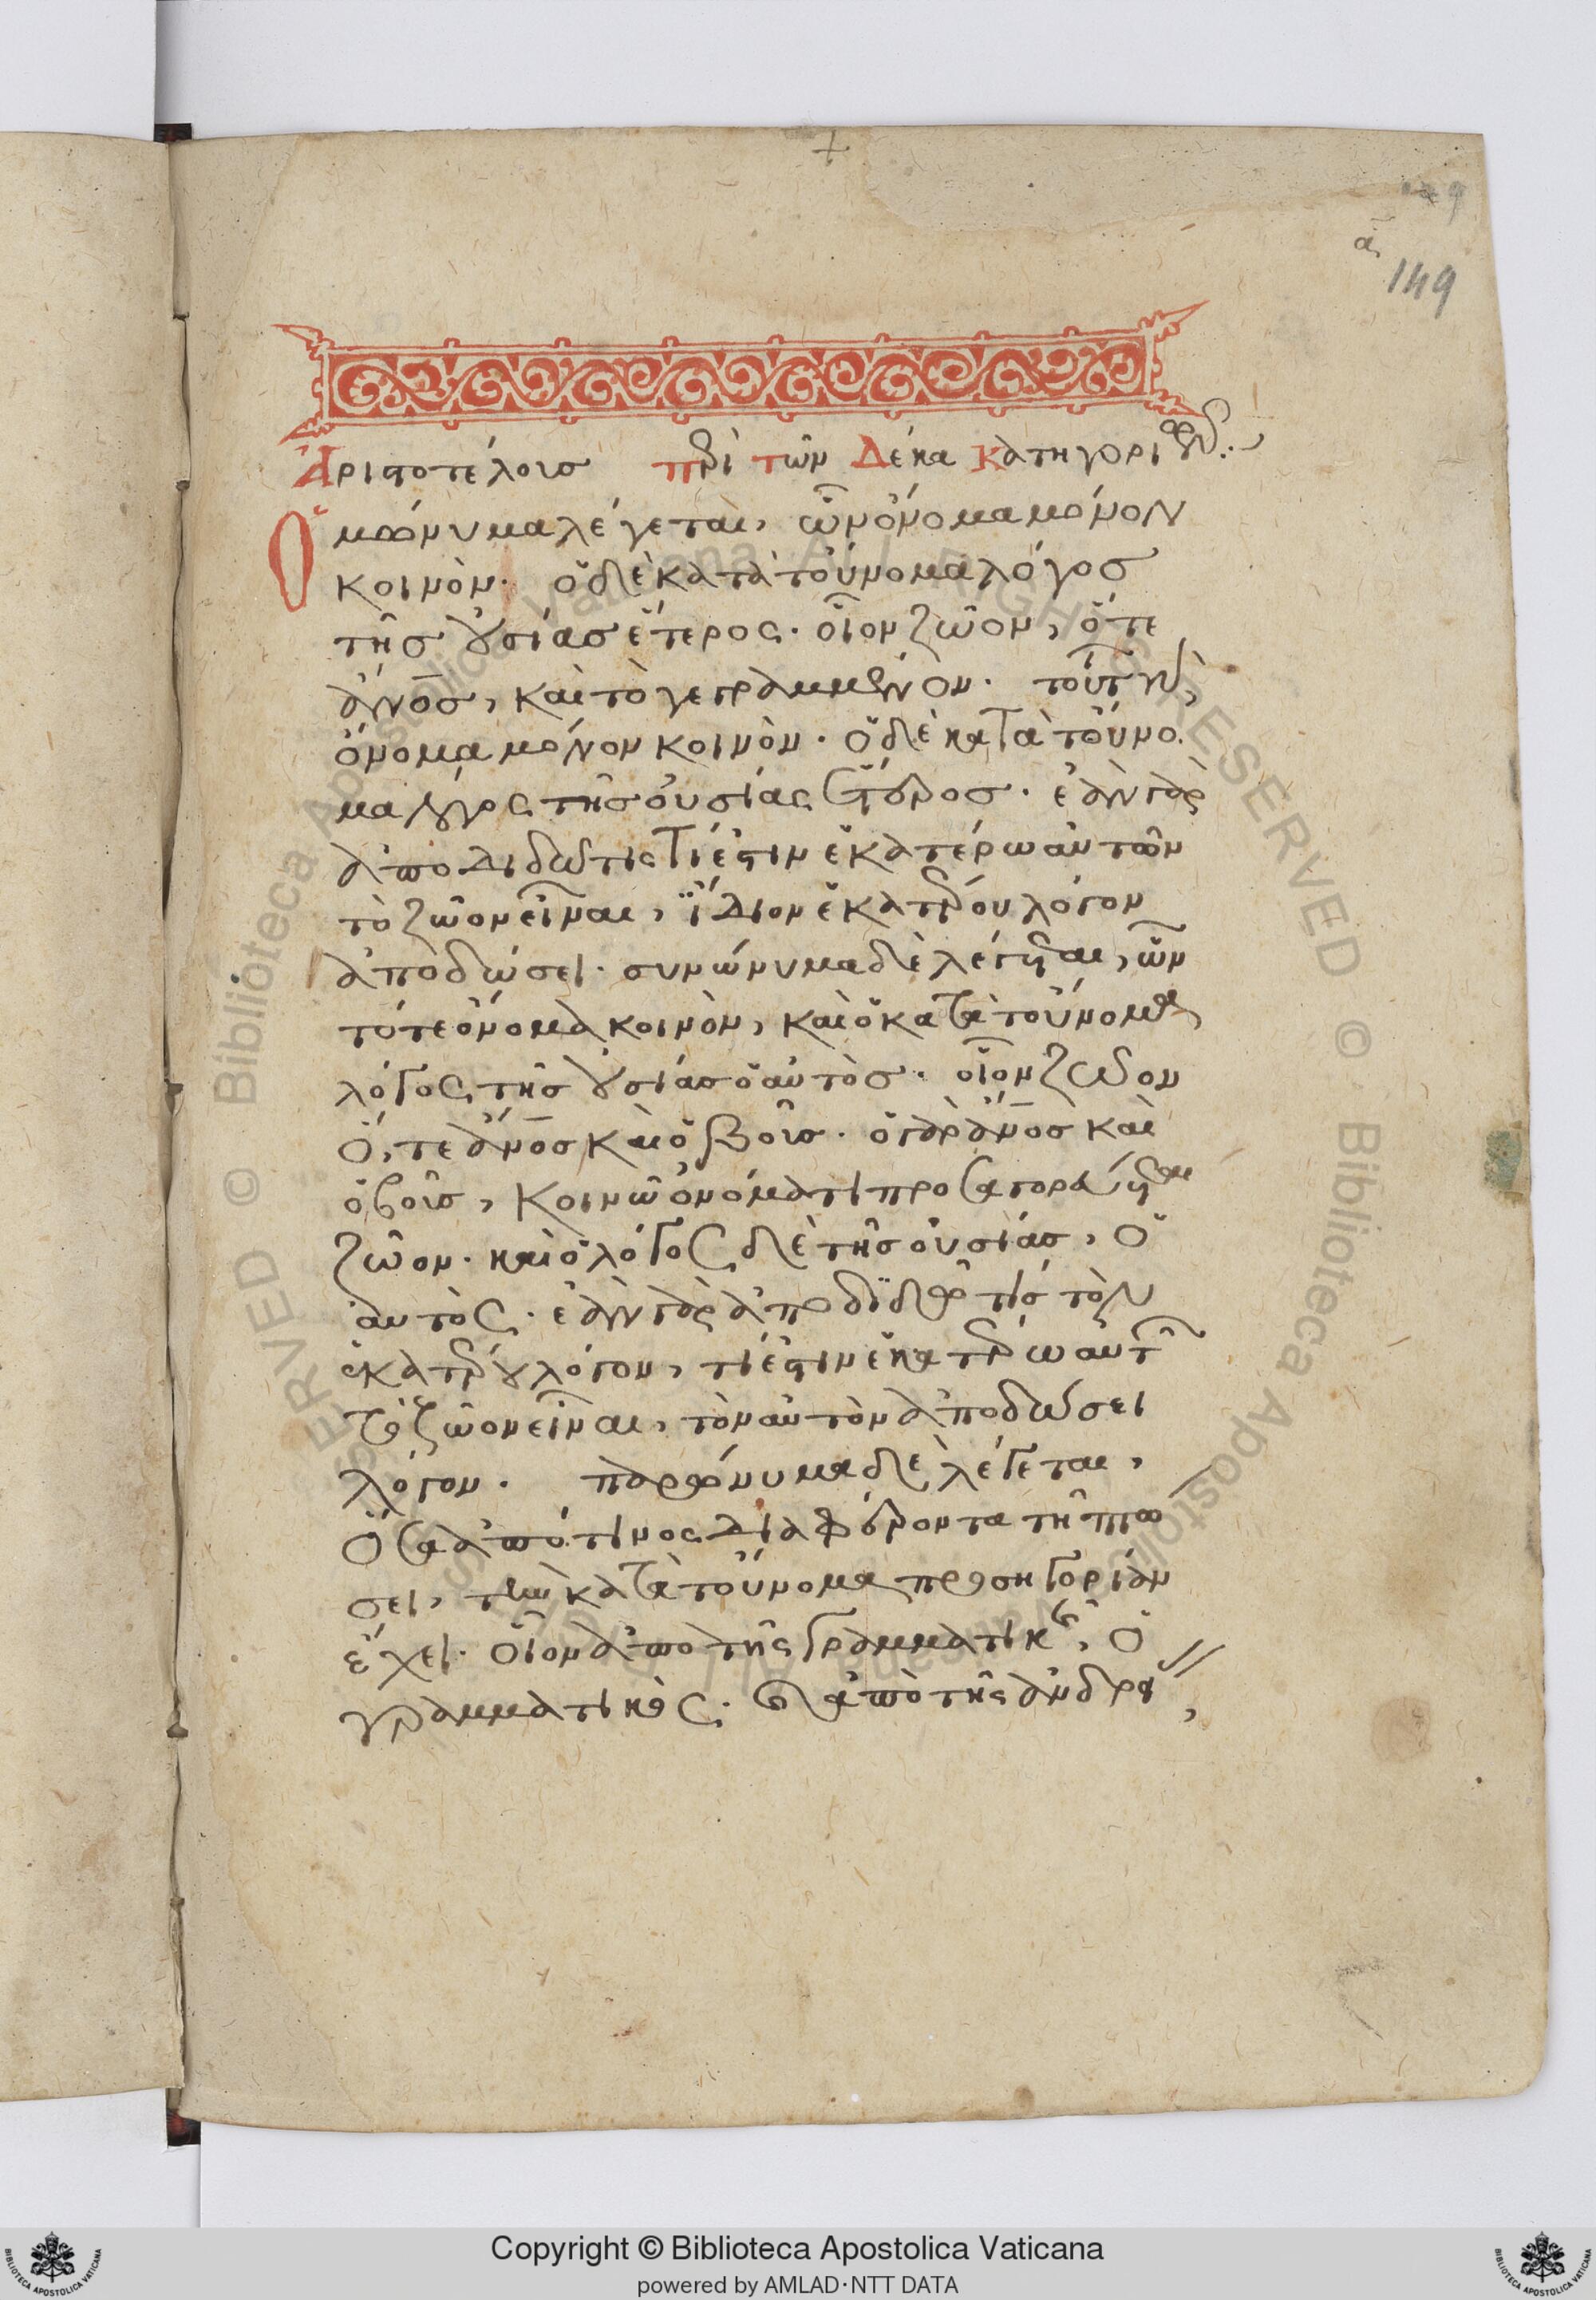 149
α
149
Ἀριστοτέλους περὶ τῶν Δέκα Κατηγοριῶν:
Ὁμώνυμα λέγεται, ὧν ὄνομα μόνον
κοινὸν· ὁ δὲ κατὰ τοὔνομα λόγος
τῆς οὐσίας ἕτερος· οἷον ζῶον, ὅτε
ἄνος, καὶ τὸ γεγραμμένον· τούτων,
ὄνομα μόνον κοινὸν· ὁ δὲ κατὰ τοὔνο
μα λόγος τῆς οὐσίας ἕτερος· ἐὰν γὰρ
ἀποδιδῶ τίς τί ἐστιν ἑκατέρω αὐτῶν
τὸ ζῶον εἶναι, ἴδιον ἑκατέρου λόγον
ἀποδώσει· συνώνυμα δὲ λέγεται, ὧν
τότε ὄνομα κοινὸν, καὶ ὁ κατὰ τοὔνομα
λόγος τῆς οὐσίας ὁ αὐτὸς· οἷον ζῶον
ὅ,τε ἄνος καὶ ὁ βοῦς· ὁ γὰρ ἄνος καὶ
ὁ βοῦς, κοινῶ ὀνόματι προσαγορεύεται
ζῶον· καὶ ὁ λόγος δὲ τῆς οὐσίας, ὁ
αὐτὸς· ἐὰν γὰρ ἀποδιδῶ τίς τὸν
ἑκατέρου λόγον, τί ἐστιν ἑκατέρω αὐτῶν
τὸ ζῶον εἶναι, τὸν αὐτὸν ἀποδώσει
λόγον· παρώνυμα δὲ λέγεται,
ὅσα ἀπό τινος διαφέροντα τῆ πτώ
σει, τὴν κατὰ τοὔνομα προσηγορίαν
ἔχει· οἷον ἀπὸ τῆς γραμματικῆς, ὁ
γραμματικὸς· καὶ ἀπὸ τῆς ἀνδρείας,
Copyright © Biblioteca Apostolica Vaticana
powered by AMLAD·NTT DATA